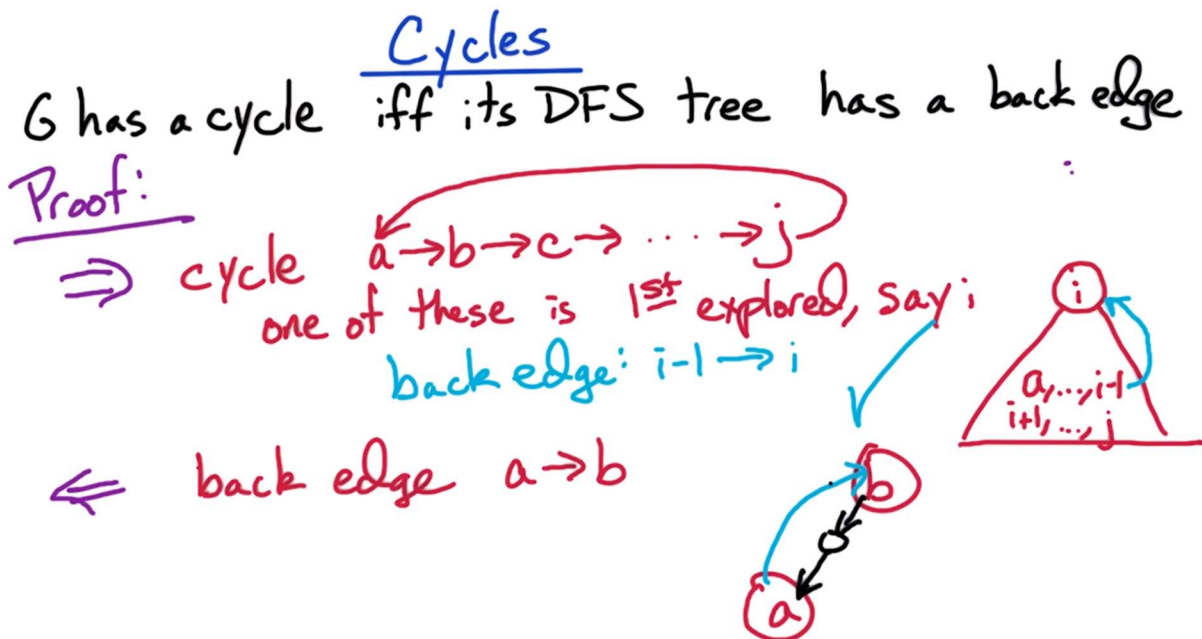 Cycles
G has a cycle iff its DFS tree has a back edge
Proof:
⇒ cycle a→b→c→ .... →j
one of these is 1st explored, say i
back edge: i-1 → i
i
a,...,i-1
i+1,...,j
⇐ back edge a→b
b
a